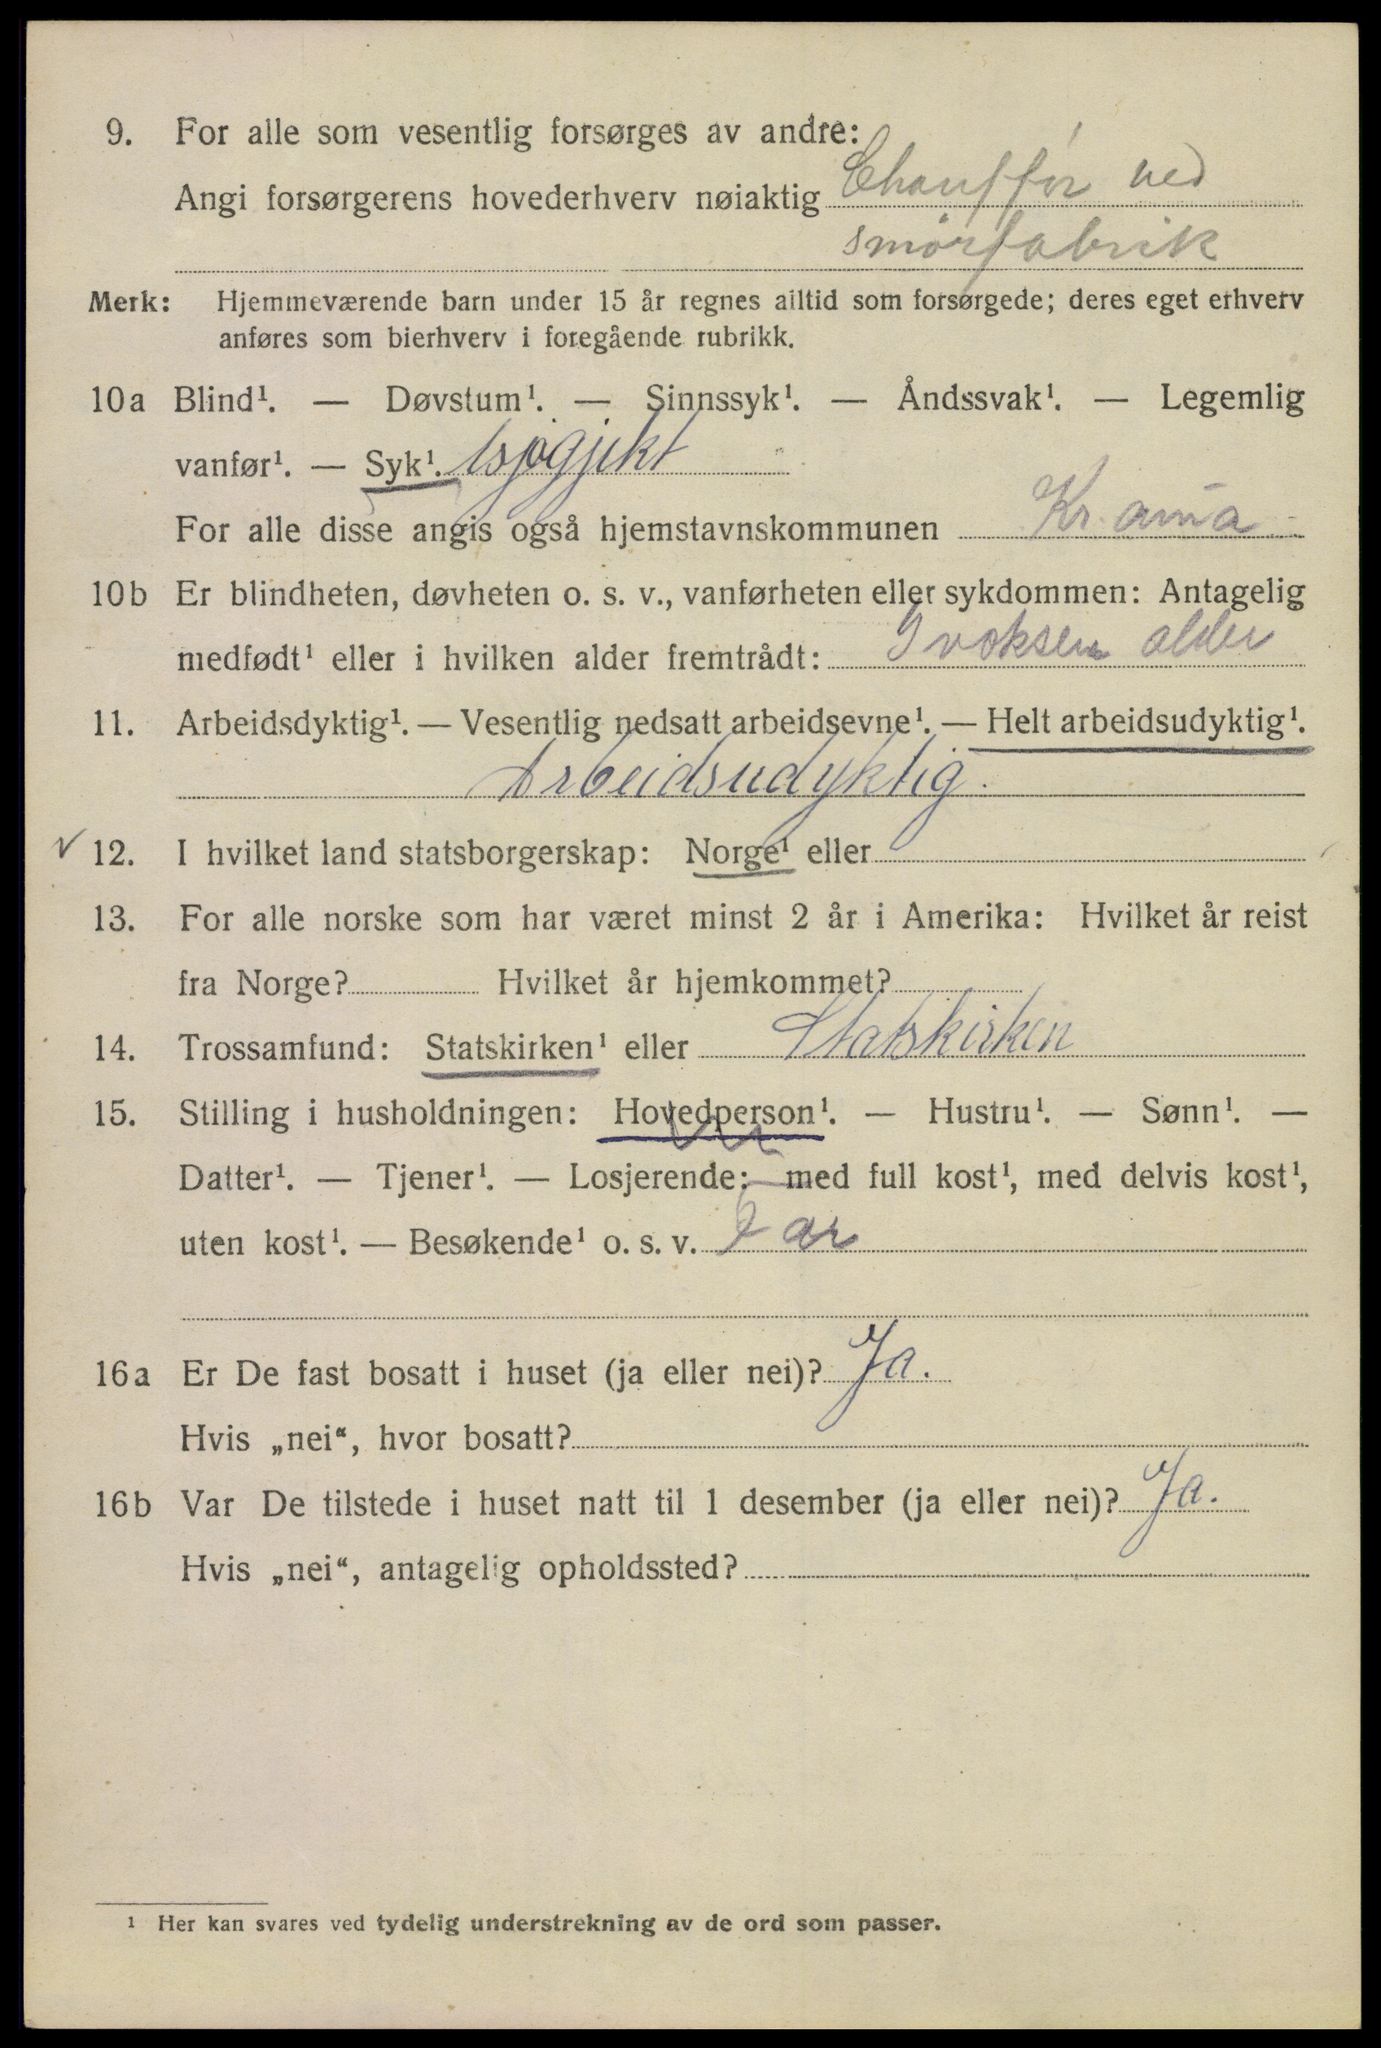 9. For alle som vesentlig forsørges av andre:
Angi forsørgerens hovederhverv nøiaktig Chauffør ved
smørfabrik
Merk: Hjemmeværende barn under 15 år regnes alltid som forsørgede; deres eget erhverv
anføres som bierhverv i foregående rubrikk.
10a Blind¹. — Døvstum¹. — Sinnssyk¹. — Åndssvak¹. — Legemlig
vanfør¹. — Syk¹.
For alle disse angis også hjemstavnskommunen Kr.ania
10b Er blindheten, døvheten o. s. v., vanførheten eller sykdommen: Antagelig
medfødt¹ eller i hvilken alder fremtrådt: I voksen alder
11. Arbeidsdyktig¹. — Vesentlig nedsatt arbeidsevne¹. — Helt arbeidsudyktig¹.
Arbeidsudyktig.
✓ 12. I hvilket land statsborgerskap: Norge¹ eller
13. For alle norske som har været minst 2 år i Amerika: Hvilket år reist
fra Norge? Hvilket år hjemkommet?
14. Trossamfund: Statskirken¹ eller Statskirken
15. Stilling i husholdningen: Hovedperson¹. — Hustru¹. — Sønn¹. —
Datter¹. — Tjener¹. — Losjerende: med full kost¹, med delvis kost¹,
uten kost¹. — Besøkende¹ o. s. v.
16a Er De fast bosatt i huset (ja eller nei)? Ja.
Hvis „nei“, hvor bosatt?
16b Var De tilstede i huset natt til 1 desember (ja eller nei)? Ja.
Hvis „nei“, antagelig opholdssted?
¹ Her kan svares ved tydelig understrekning av de ord som passer.